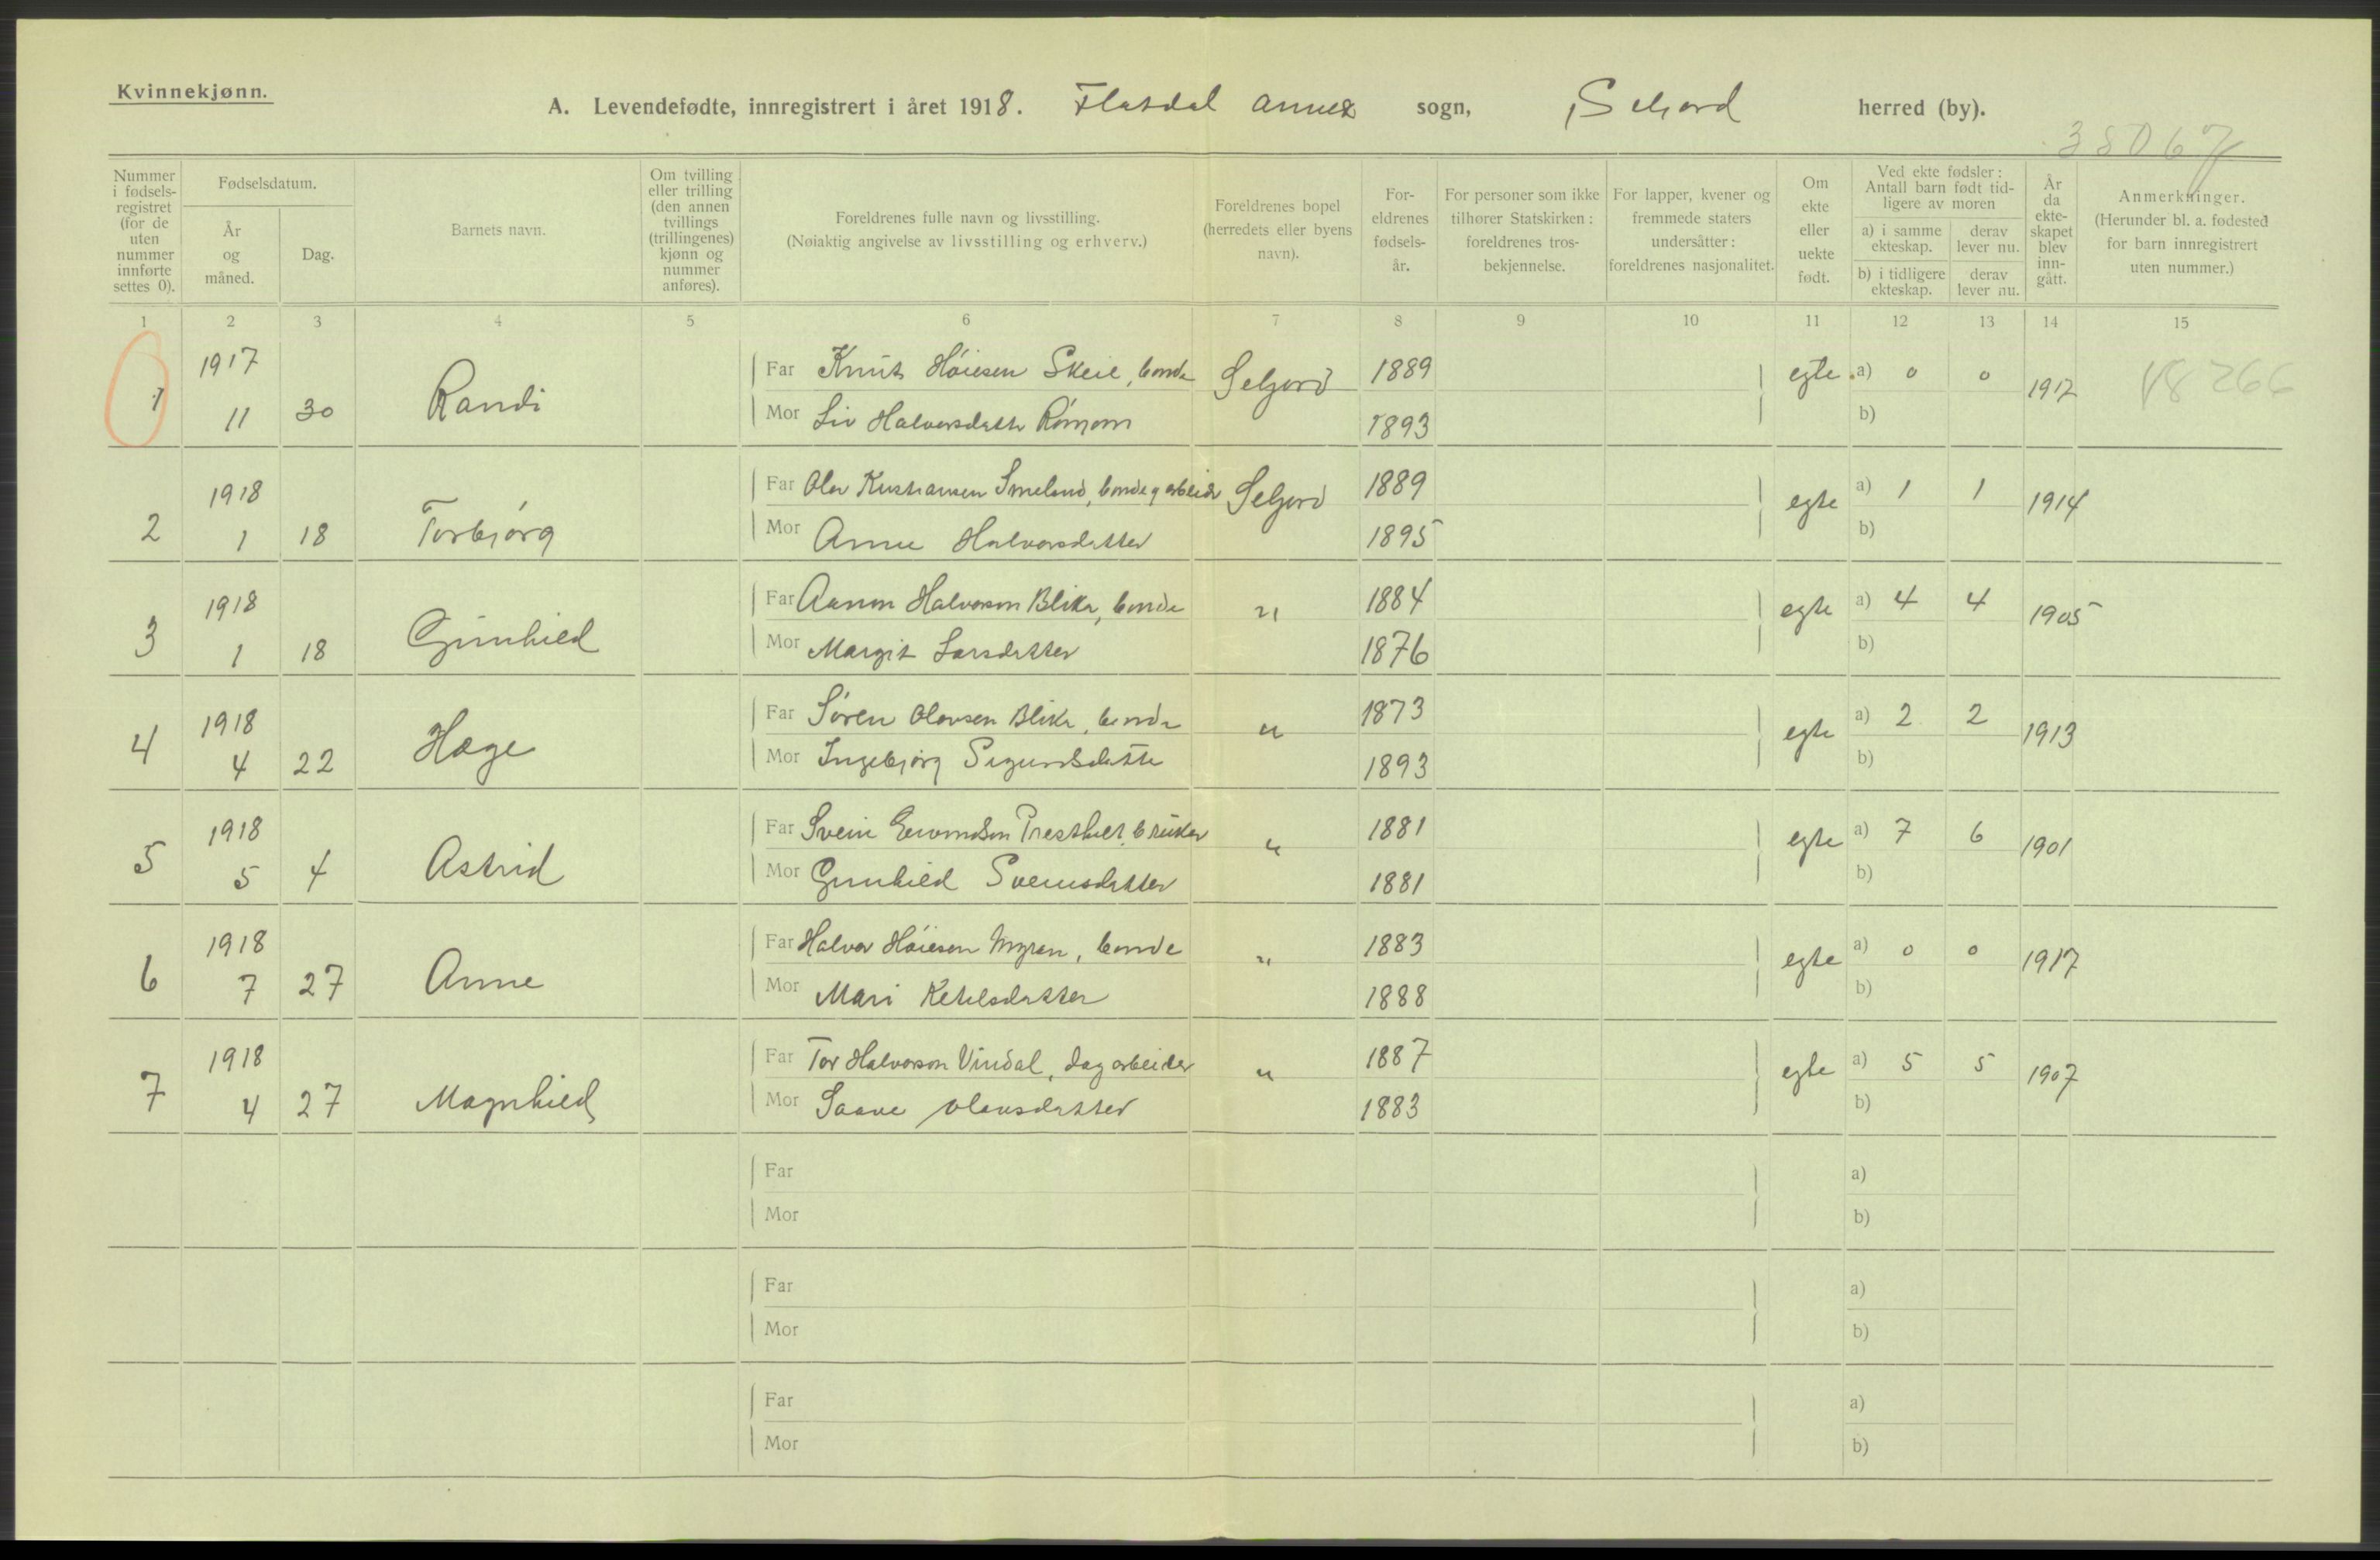 Kvinnekjønn.
A. Levendefødte, innregistrert i året 1918. Flatdal annex sogn, Seljord herred (by).
38067
Nummer i fødselsregistret (for de uten nummer innførte settes 0).
Fødselsdatum.
År og måned.
Dag.
Barnets navn.
Om tvilling eller trilling (den annen tvillings (trillingenes) kjønn og nummer anføres).
Foreldrenes fulle navn og livsstilling. (Nøiaktig angivelse av livsstilling og erhverv.)
Foreldrenes bopel (herredets eller byens navn).
Foreldrenes fødselsår.
For personer som ikke tilhører Statskirken: foreldrenes trosbekjennelse.
For lapper, kvener og fremmede staters undersåtter: foreldrenes nasjonalitet.
Om ekte eller uekte født.
Ved ekte fødsler: Antall barn født tidligere av moren
a) i samme ekteskap.
derav lever nu.
b) i tidligere ekteskap.
derav lever nu.
År da ekteskapet blev inngått.
Anmerkninger. (Herunder bl. a. fødested for barn innregistrert uten nummer.)
1 2 3 4 5 6 7 8 9 10 11 12 13 14 15
1 1917 11 30 Randi
Far Knut Høiesen Skeie, bonde Seljord 1889 egte a) 0 0 1917 18266
Mor Liv Halvorsdatter 1893 b)
2 1918 1 18 Torbjørg
Far Olav Kristiansen Smeland, bonde og arbeider Seljord 1889 egte a) 1 1 1914
Mor Anne Halvorsdatter 1895 b)
3 1918 1 18 Gunhild
Far Aanon Halvorson Blika, bonde " 1884 egte a) 4 4 1905
Mor Margit Larsdatter 1876 b)
4 1918 4 22 Hæge
Far Søren Olavsen Blika, bonde " 1873 egte a) 2 2 1913
Mor Ingebjørg Sigurdsdatter 1893 b)
5 1918 5 4 Astrid
Far Svein Presthus, bruker " 1881 egte a) 7 6 1901
Mor Gunhild Sveinsdatter 1881 b)
6 1918 7 27 Anne
Far Halvor Høiesen Myren, bonde " 1883 egte a) 0 0 1917
Mor Mari Ketilsdatter 1888 b)
7 1918 4 27 Magnhild
Far Tor Halvorson Vindal, dagarbeider " 1887 egte a) 5 5 1907
Mor Saave Olavsdatter 1883 b)
Far a)
Mor b)
Far a)
Mor b)
Far a)
Mor b)